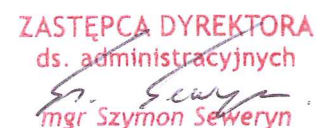 ZASTĘPCA DYREKTORA
ds. administracyjnych
mgr Szymon Seweryn